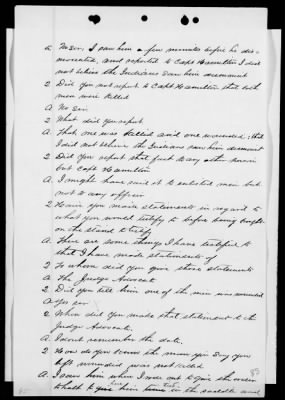 A No sir, I saw him a few minutes before he dis-
mounted, and reported to Capt Hamilton I did
not believe the Indians saw him dismount
Q Did you not report to Capt Hamilton that both
men were killed
A No sir
Q What did you report
A That one was killed and one wounded; that
I did not believe the Indians saw him dismount
Q Did you report that fact to any other person
but Capt Hamilton
A. I might have said it to enlisted men but
not to any officer
Q Have you made statements in regard to
what you would testify to before being brought
on the stand to testify
A. There are some things I have testified to
that I have made statements of
Q To whom did you give those statements
A The Judge Advocate
Q Did you tell him one of the men was wounded
A Yes sir
Q When did you make that statement to the
Judge Advocate.
A. I do not remember the date.
Q How do you know the man you say you
left wounded was not killed
A I saw him when I rode out to give the men
to give him in the saddle and